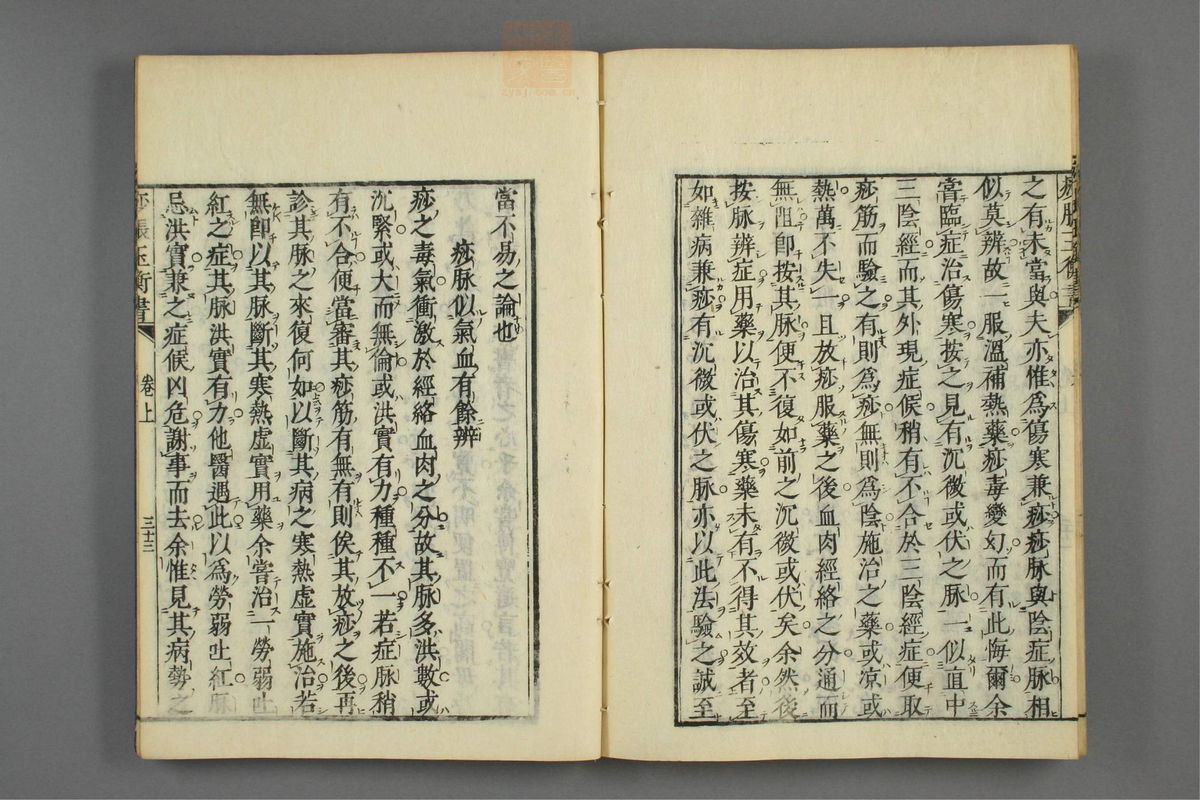 之有未當與夫亦惟爲傷寒兼痧痧脉與陰症脉相
似莫辨故一服溫補熱藥痧毒變幻而有此悔爾余
嘗臨症治傷寒按之見有沉微或伏之脉一似直中
三陰經而其外現症候稍有不合於三陰經症便取
痧筋而驗之有則爲痧無則爲陰施治之藥或凉或
熱萬不失一且放痧服藥之後血肉經絡之分通而
無阻卽按其脉便不復如前之沉微或伏矣余然後
按脉辨症用藥以治其傷寒藥未有不得其效者至
如雜病兼痧有沉微或伏之脉亦以此法驗之誠至
當不易之論也
痧脉似氣血有餘辨
痧之毒氣衝激於經絡血肉之分故其脉多洪數或
沉緊或大而無倫或洪實有力種種不一若症脉稍
有不合便當審其痧筋有無有則俟其放痧之後再
診其脉之來復何如以斷其病之寒熱虛實施治若
無卽以其脉斷其寒熱虛實用藥余嘗治一勞弱吐
紅之症其脉洪實有力他醫遇此以爲勞弱吐紅脉
忌洪實兼之症候凶危謝事而去余惟見其病勢之
痧脹玉衡書
卷上
三十三
zysj.com.cn